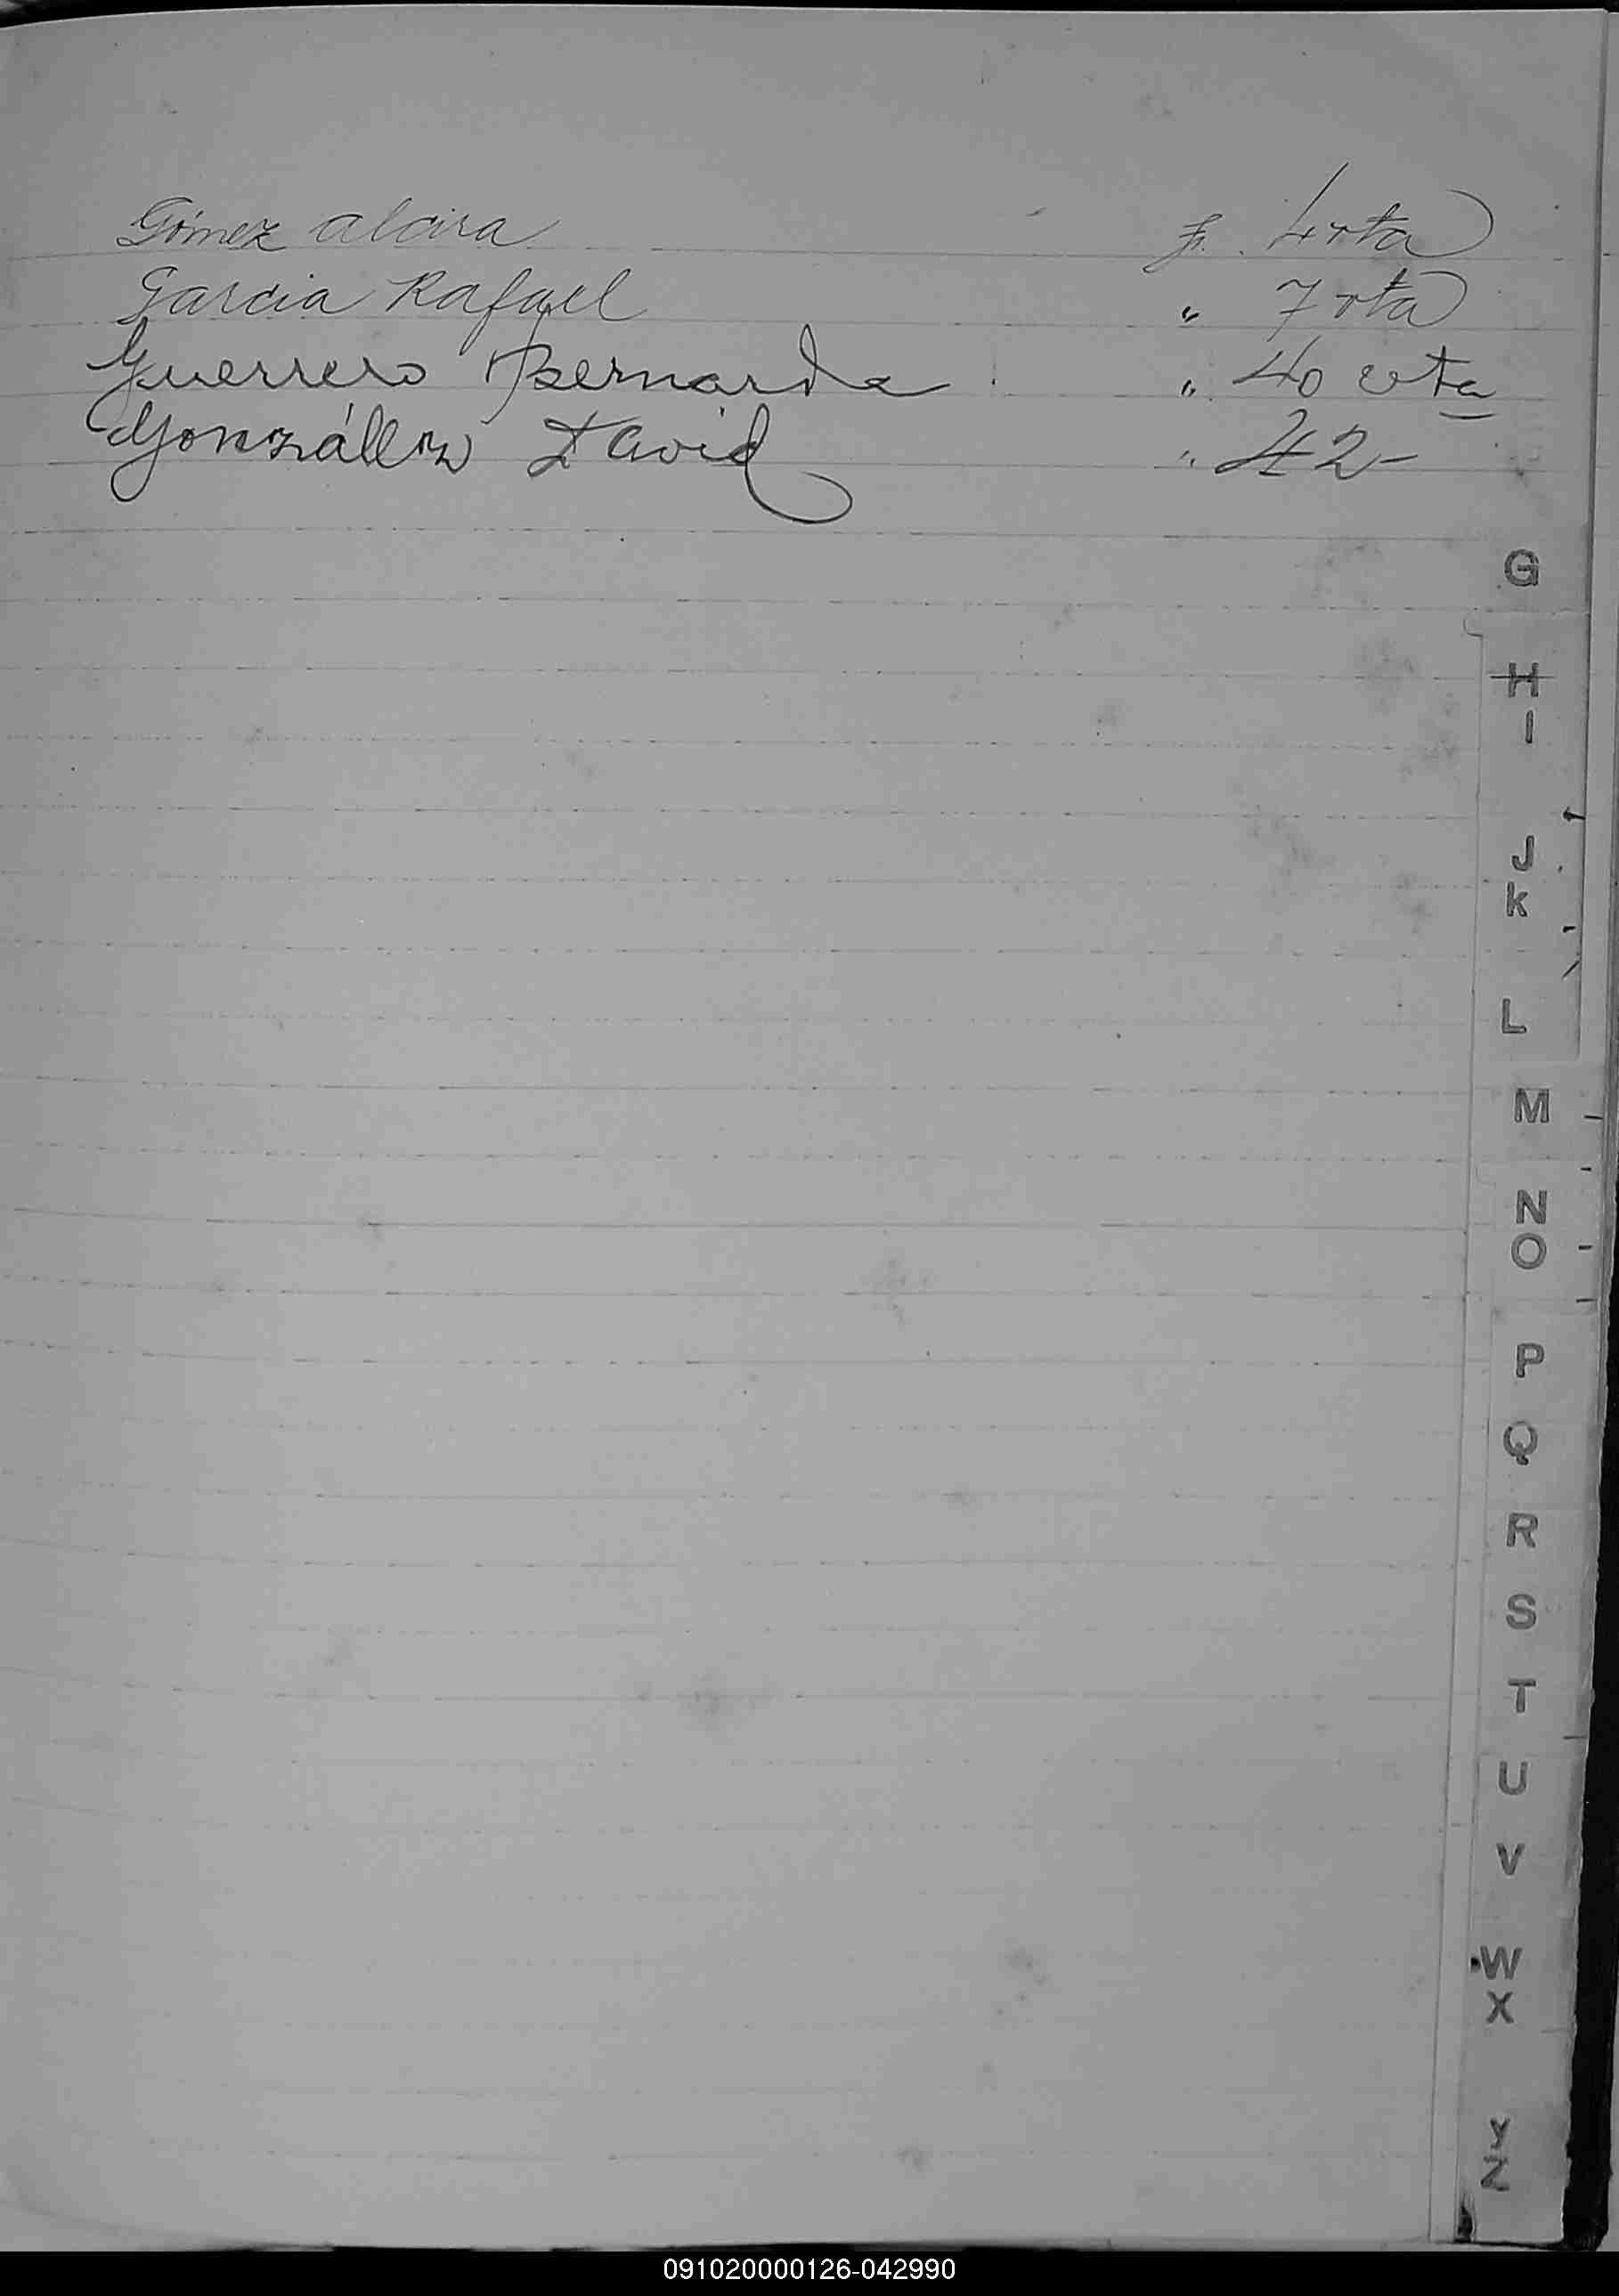 Gómez Alcira f. 4 vta
Garcia Rafael " 7 vta
Guerrero Bernarda " 40 vta
Gonzállez David " 42-
G
H
I
J
K
L
M
N
O
P
Q
R
S
T
U
V
W
X
Y
Z
091020000126-042990